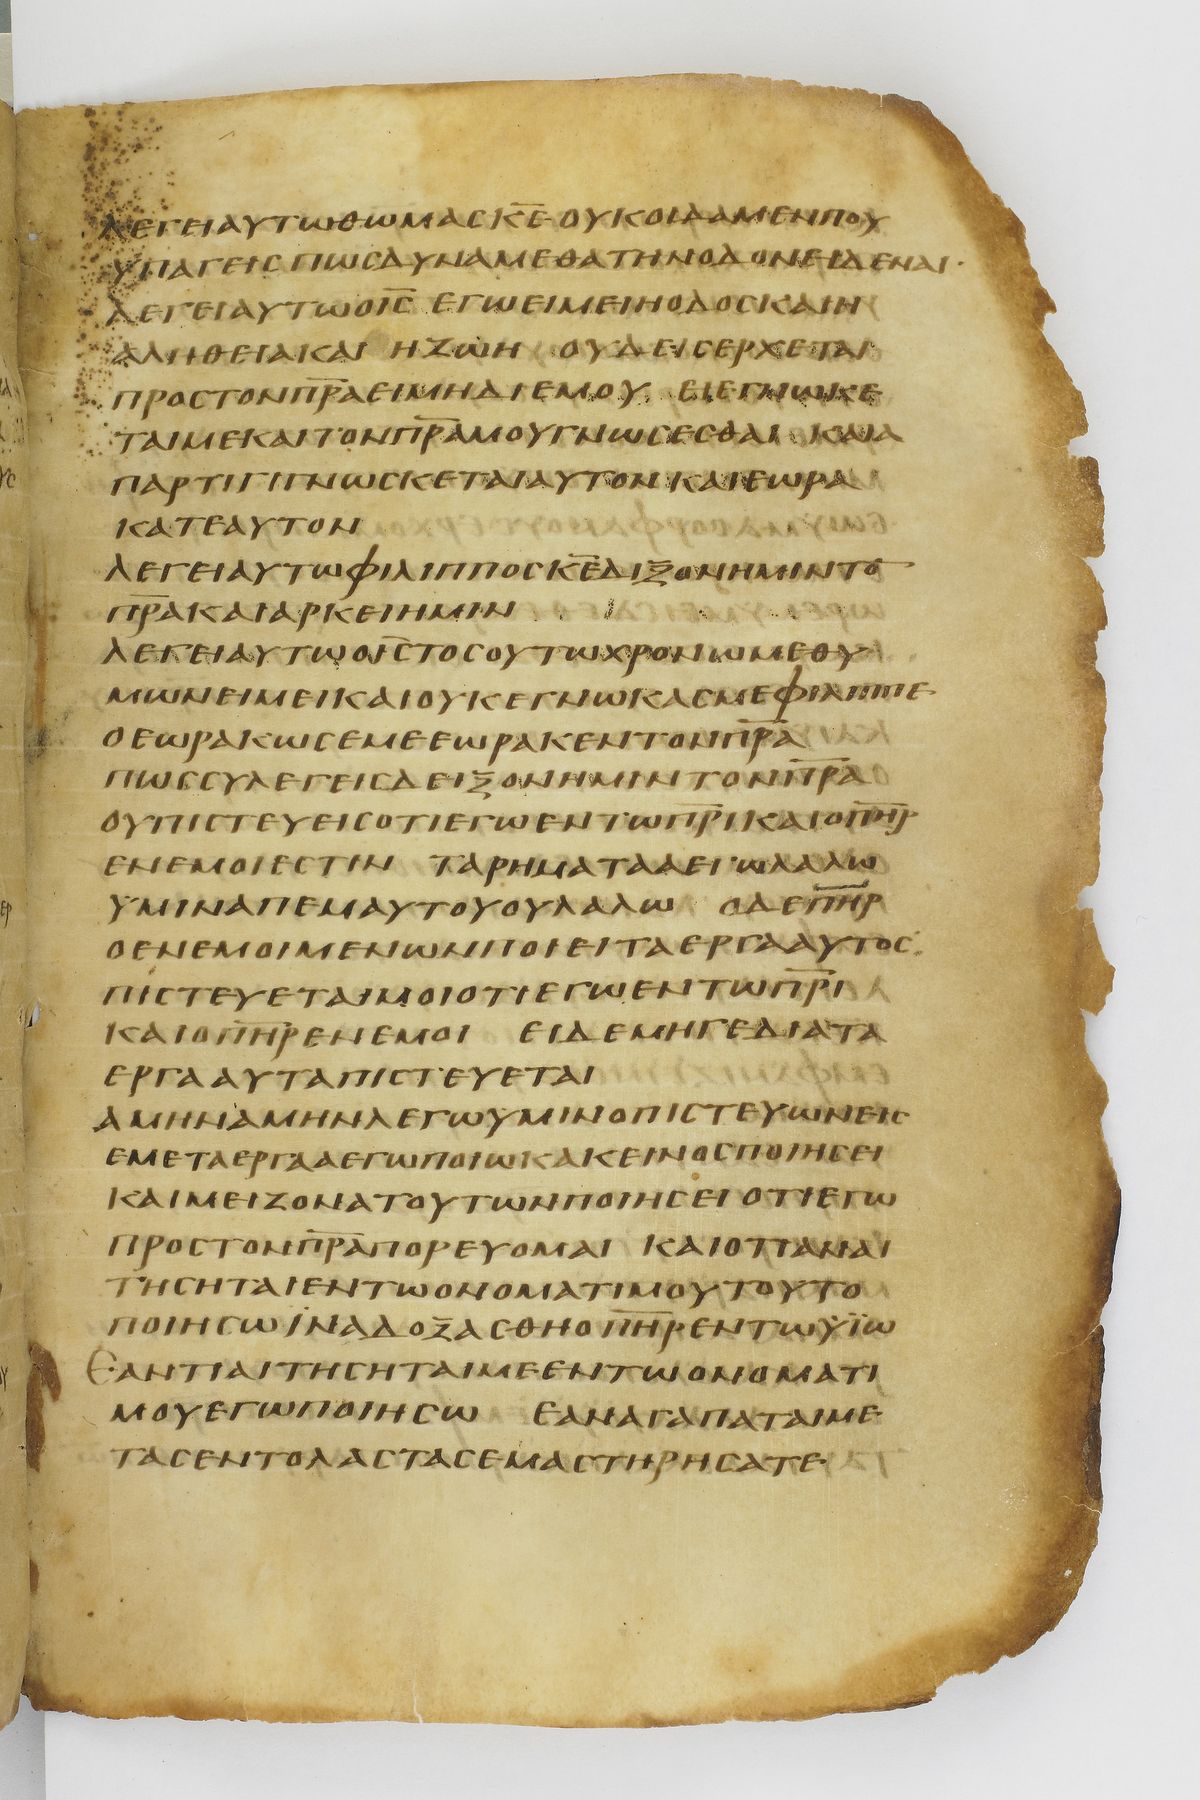 ΛΕΓΕΙΑΥΤΩΘΩΜΑΣΚ̅Ε̅ΟΥΚΟΙΔΑΜΕΝΠΟΥ
ΥΠΑΓΕΙΣΠΩΣΔΥΝΑΜΕΘΑΤΗΝΟΔΟΝΕΙΔΕΝΑΙ·
ΛΕΓΕΙΑΥΤΩΟΙ̅Σ̅ ΕΓΩΕΙΜΕΙΗΟΔΟΣΚΑΙΗ
ΑΛΗΘΕΙΑΚΑΙ ΗΖΩΗ ΟΥΔΕΙΣΕΡΧΕΤΑΙ
ΠΡΟΣΤΟΝΠ̅Ρ̅Α̅ΕΙΜΗΔΙΕΜΟΥ ΕΙΕΓΝΩΚΕ
ΤΑΙΜΕΚΑΙΤΟΝΠ̅Ρ̅Α̅ΜΟΥΓΝΩΣΕΣΘΑΙ ΚΑΙΑ
ΠΑΡΤΙΓΙΓΝΩΣΚΕΤΑΙΑΥΤΟΝΚΑΙΕΩΡΑ
ΚΑΤΕΑΥΤΟΝ
ΛΕΓΕΙΑΥΤΩΦΙΛΙΠΠΟΣΚ̅Ε̅ΔΙΞΟΝΗΜΙΝΤΟ̅
Π̅Ρ̅Α̅ΚΑΙΑΡΚΕΙΗΜΙΝ
ΛΕΓΕΙΑΥΤΩΟΙ̅Σ̅ΤΟΣΟΥΤΩΧΡΟΝΩΜΕΘΥ
ΜΩΝΕΙΜΕΙΚΑΙΟΥΚΕΓΝΩΚΑΣΜΕΦΙΛΙΠΠΕ·
ΟΕΩΡΑΚΩΣΕΜΕΕΩΡΑΚΕΝΤΟΝΠ̅Ρ̅Α̅
ΠΩΣΣΥΛΕΓΕΙΣΔΕΙΞΟΝΗΜΙΝΤΟΝΠ̅Ρ̅Α̅
ΟΥΠΙΣΤΕΥΕΙΣΟΤΙΕΓΩΕΝΤΩΠ̅Ρ̅Ι̅ΚΑΙΟΠ̅Η̅Ρ̅
ΕΝΕΜΟΙΕΣΤΙΝ ΤΑΡΗΜΑΤΑΑΕΓΩΛΑΛΩ
ΥΜΙΝΑΠΕΜΑΥΤΟΥΟΥΛΑΛΩ ΟΔΕΠ̅Η̅Ρ̅
ΟΕΝΕΜΟΙΜΕΝΩΝΠΟΙΕΙΤΑΕΡΓΑΑΥΤΟΣ·
ΠΙΣΤΕΥΕΤΑΙΜΟΙΟΤΙΕΓΩΕΝΤΩΠ̅Ρ̅Ι̅
ΚΑΙΟΠ̅Η̅Ρ̅ΕΝΕΜΟΙ ΕΙΔΕΜΗΓΕΔΙΑΤΑ
ΕΡΓΑΑΥΤΑΠΙΣΤΕΥΕΤΑΙ
ΑΜΗΝΑΜΗΝΛΕΓΩΥΜΙΝΟΠΙΣΤΕΥΩΝΕΙΣ
ΕΜΕΤΑΕΡΓΑΑΕΓΩΠΟΙΩΚΑΚΕΙΝΟΣΠΟΙΗΣΕΙ
ΚΑΙΜΕΙΖΟΝΑΤΟΥΤΩΝΠΟΙΗΣΕΙΟΤΙΕΓΩ
ΠΡΟΣΤΟΝΠ̅Ρ̅Α̅ΠΟΡΕΥΟΜΑΙ ΚΑΙΟΤΙΑΝΑΙ
ΤΗΣΗΤΑΙΕΝΤΩΟΝΟΜΑΤΙΜΟΥΤΟΥΤΟ
ΠΟΙΗΣΩΙΝΑΔΟΞΑΣΘΗΟΠ̅Η̅Ρ̅ΕΝΤΩΥΪΩ
ΕΑΝΤΙΑΙΤΗΣΗΤΑΙΜΕΕΝΤΩΟΝΟΜΑΤΙ
ΜΟΥΕΓΩΠΟΙΗΣΩ ΕΑΝΑΓΑΠΑΤΑΙΜΕ·
ΤΑΣΕΝΤΟΛΑΣΤΑΣΕΜΑΣΤΗΡΗΣΑΤΕ·